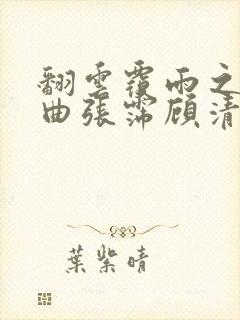 翻雲覆雨之
曲張霈顧清
葉紫晴